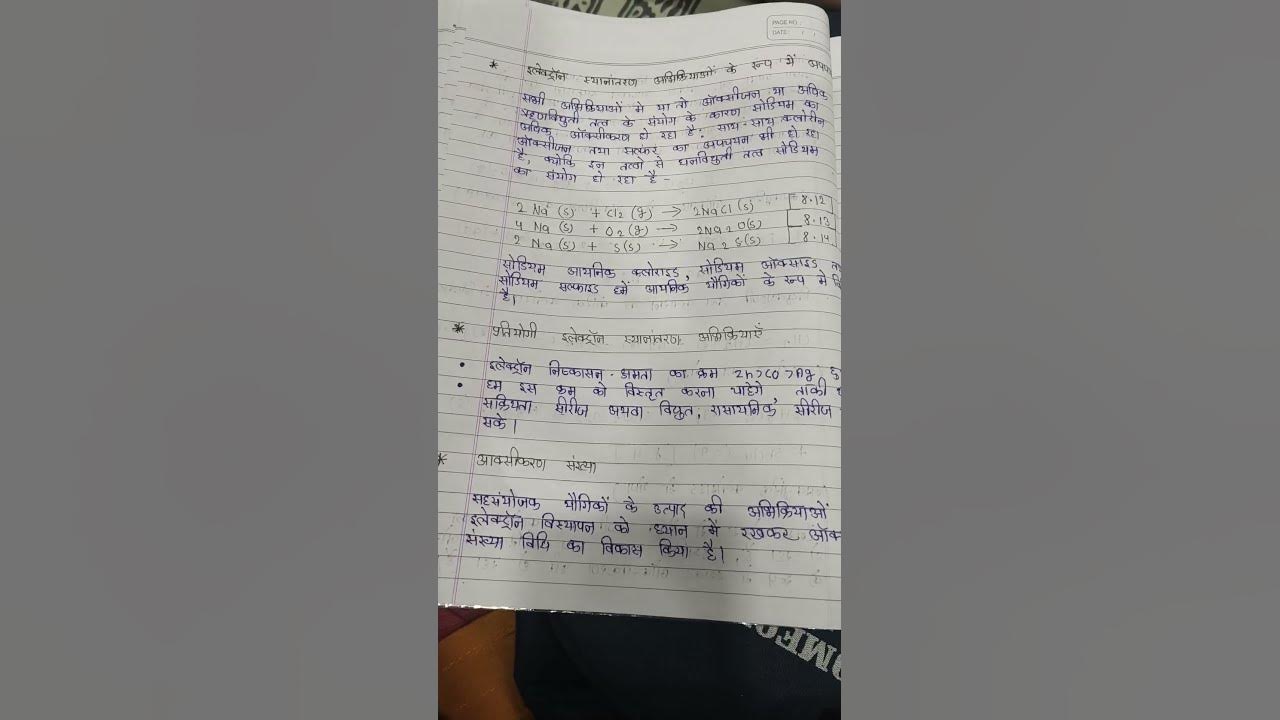 PAGE NO.:
DATE: / /
* इलेक्ट्रॉन स्थानांतरण अभिक्रियाओं के रूप में
सभी अभिक्रियाओं मे या तो ऑक्सीजन या अधिक
ऋणविद्युती तत्व के संयोग के कारण सोडियम का
अधिक ऑक्सीकरण हो रहा है। साथ-साथ क्लोरीन
ऑक्सीजन तथा सल्फर का अपचयन भी हो रहा
है, क्योकि इन तत्वो से धनविद्युती तत्व सोडियम
का संयोग हो रहा है -
2 Na (s) + Cl2 (g) → 2NaCl (s) 8.12
4 Na (s) + O2 (g) → 2Na2O(s) 8.13
2 Na (s) + S(s) → Na2S(s) 8.14
सोडियम आयनिक क्लोराइड, सोडियम ऑक्साइड
सोडियम सल्फाइड हमें आयनिक यौगिकों के रूप मे
है।
* प्रतियोगी इलेक्ट्रॉन स्थानांतरण अभिक्रियाएँ
• इलेक्ट्रॉन निष्कासन क्षमता का क्रम Zn>Co>Ag
• हम इस क्रम को विस्तृत करना चाहेगे, ताकी
सक्रियता सीरीज अथवा विद्युत, रासायनिक सीरीज
सके।
* आक्सीकरण संख्या
सहसंयोजक यौगिकों के उत्पाद की अभिक्रियाओं
इलेक्ट्रॉन विस्थापन को ध्यान में रखकर
संख्या विधि का विकास किया है।